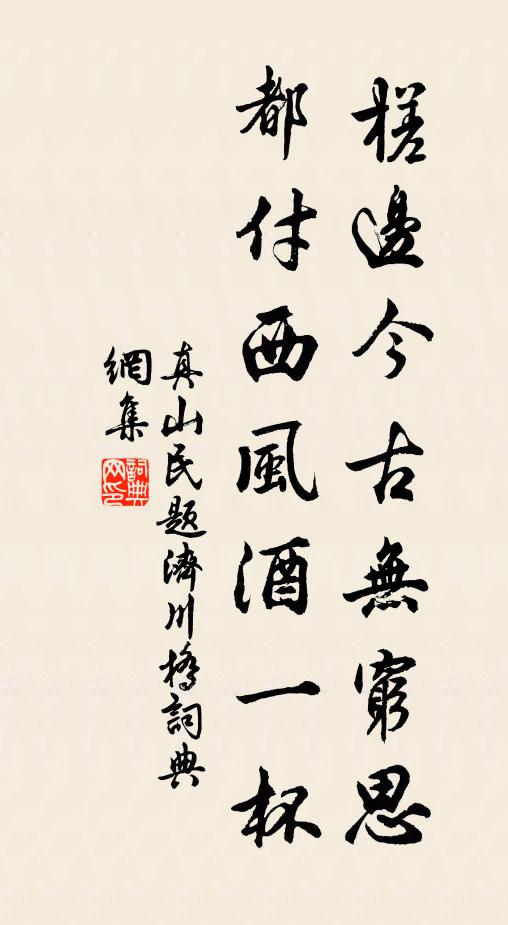 槎邊今古無窮思
都付西風酒一杯
真山民題濟川橋詞典
網集
詞典網印